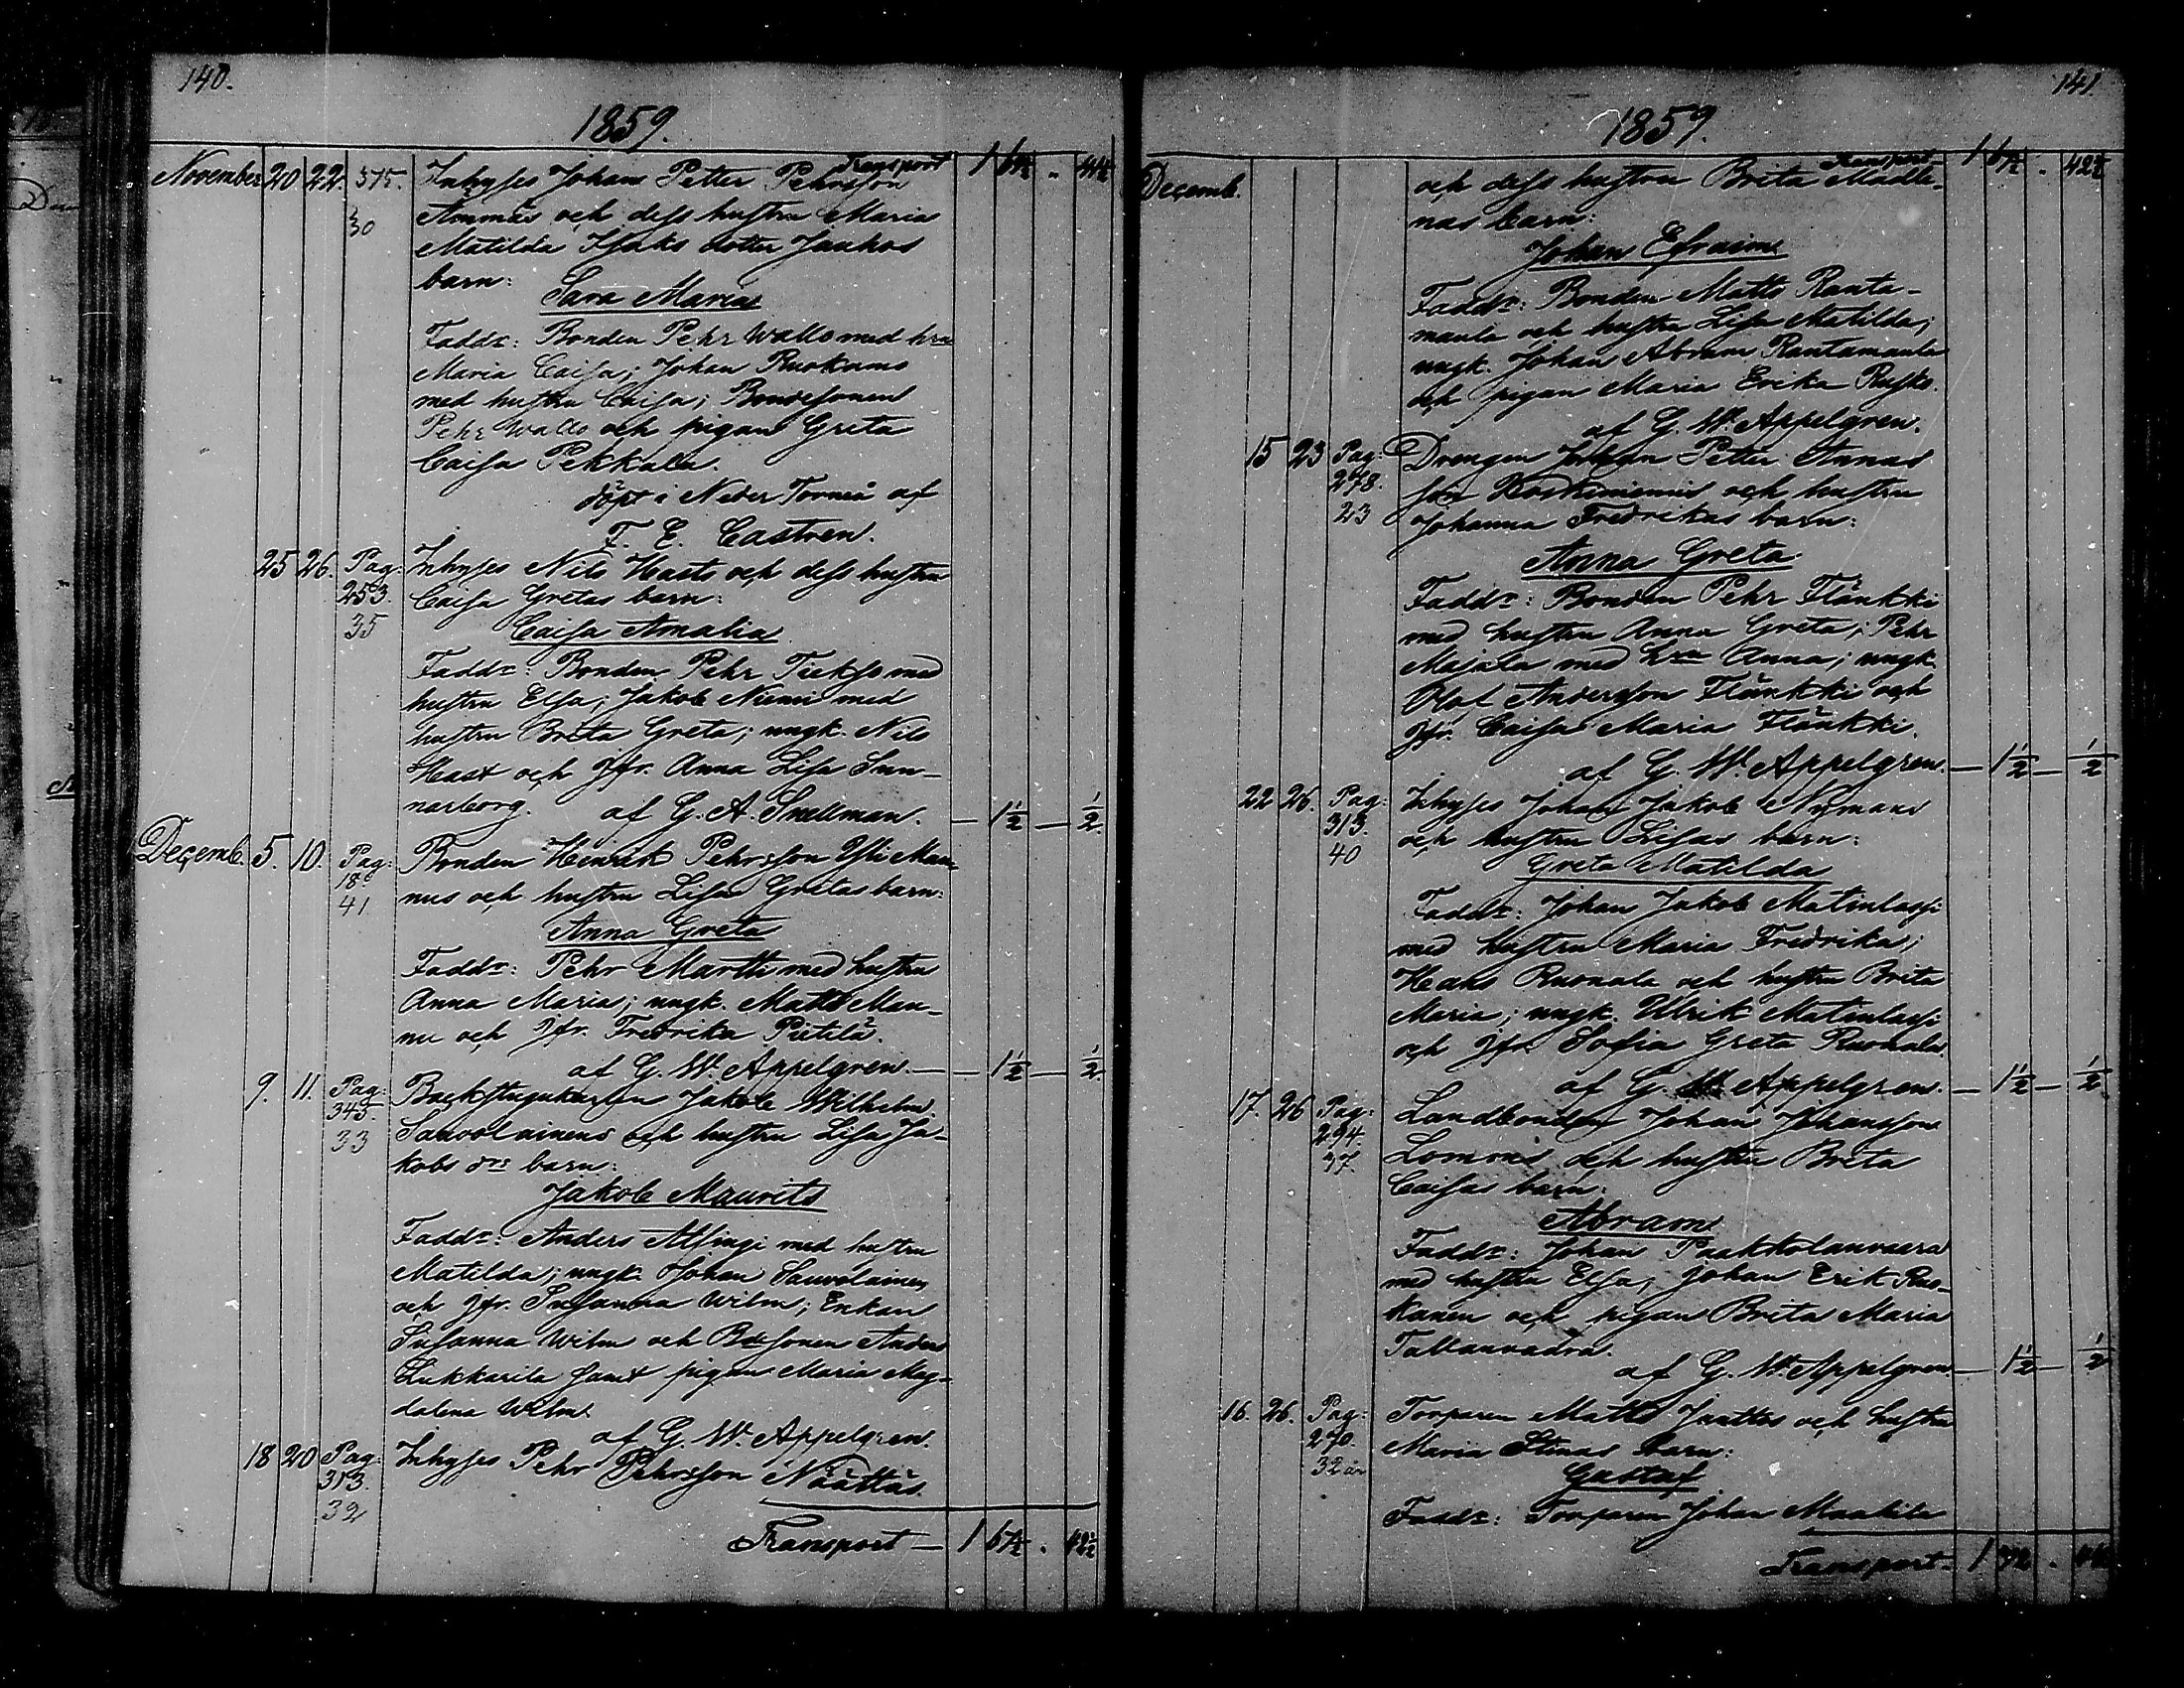 140.
1859.
Transport 1 6½ . 41½
November 20 22. 375. Inhyses Johan Petter Pehrsson
30 Ammäs och dess hustru Maria
Matilda Isaks dotter Jaakos
barn:
Sara Maria
Faddr: Bonden Pehr Wallo med hru
Maria Caisa; Johan Ruokamo
med hustru Caisa; Bondesonen
Pehr Wallo och pigan Greta
Caisa Pekkala.
döpt i Neder Torneå af
F. E. Castren.
25 26. Pag: Inhyses Nils Hasts och dess hustru
253. Caisa Gretas barn:
35 Caisa Amalia
Faddr: Bonden Pehr Tiekso med
hustru Elsa; Jakob Niemi med
hustru Brita Greta; ungk. Nils
Hast och Jfr. Anna Lisa Sun-
narborg. af G. A. Snellman. — 1½ — ½
Decemb. 5. 10. Pag: Bonden Henrik Pehrsson Yli Man-
18 nus och hustru Lisa Gretas barn:
41. Anna Greta
Faddr: Pehr Martti med hustru
Anna Maria; ungk. Matts Man-
nu och Jfr. Fredrika Pietilä.
af G. W. Appelgren. — 1½ — ½
9. 11. Pag: Backstugukarlen Jakob Wilhelm
345 Sauvolainens och hustru Lisa Ja-
33 kobs drs barn:
Jakob Maurits
Faddr: Anders Alsingi med hustru
Matilda; ungk. Johan Sauvolainen
och Jfr. Susanna Wilm; Enkan
Susanna Wilm och Bdesonen Anders
Lukkarila samt pigan Maria Mag-
dalena Wilm
af G. W. Appelgren.
18 20 Pag: Inhyses Pehr Pehrsson Näättäs
313.
32
Transport — 1 67½ . 42½
141.
1859.
Transport 1 67½ . 42½
Decemb. och dess hustru Brita Madle-
nas barn:
Johan Efraim
Faddr: Bonden Matts Ranta-
maula och hustru Lisa Matilda;
ungk. Johan Abram Rantamaula
och pigan Maria Erika Rusko.
af G. W. Appelgren.
15 23 Pag: Drengen Johan Petter Annas
278. son Koskiniemis och hustru
23 Johanna Fredrikas barn:
Anna Greta
Faddr: Bonden Pehr Flänkki
med hustru Anna Greta; Pehr
Majala med hru Anna; ungk.
Olof Andersson Flänkki och
Jfr. Caisa Maria Flänkki.
af G. W. Appelgren. — 1½ — ½
22 26. Pag: Inhyses Johan Jakob Nymans
313. och hustru Lisas barn:
40 Greta Matilda
Faddr: Johan Jakob Matinlassi
med hustru Maria Fredrika;
Hans Ruonala och hustru Brita
Maria; ungk. Ulrik Matinlassi
och Jfr. Sofia Greta Ruonala
af G. W. Appelgren. — 1½ — ½
17. 26 Pag: Landbonden Johan Johansson
294. Lommis och hustru Brita
37. Caisas barn:
Abram
Faddr: Johan Paakkolanvaara
med hustru Elsa, Johan Erik Ruo-
kanen och pigan Brita Maria
Tallavaara.
af G. W. Appelgren. — 1½ — ½
16. 26. Pag: Torparen Matts Janttos och hustru
270. Maria Stinas barn:
32 år Gustaf
Faddr: Torparen Johan Maakila
Transport — 1 72 .